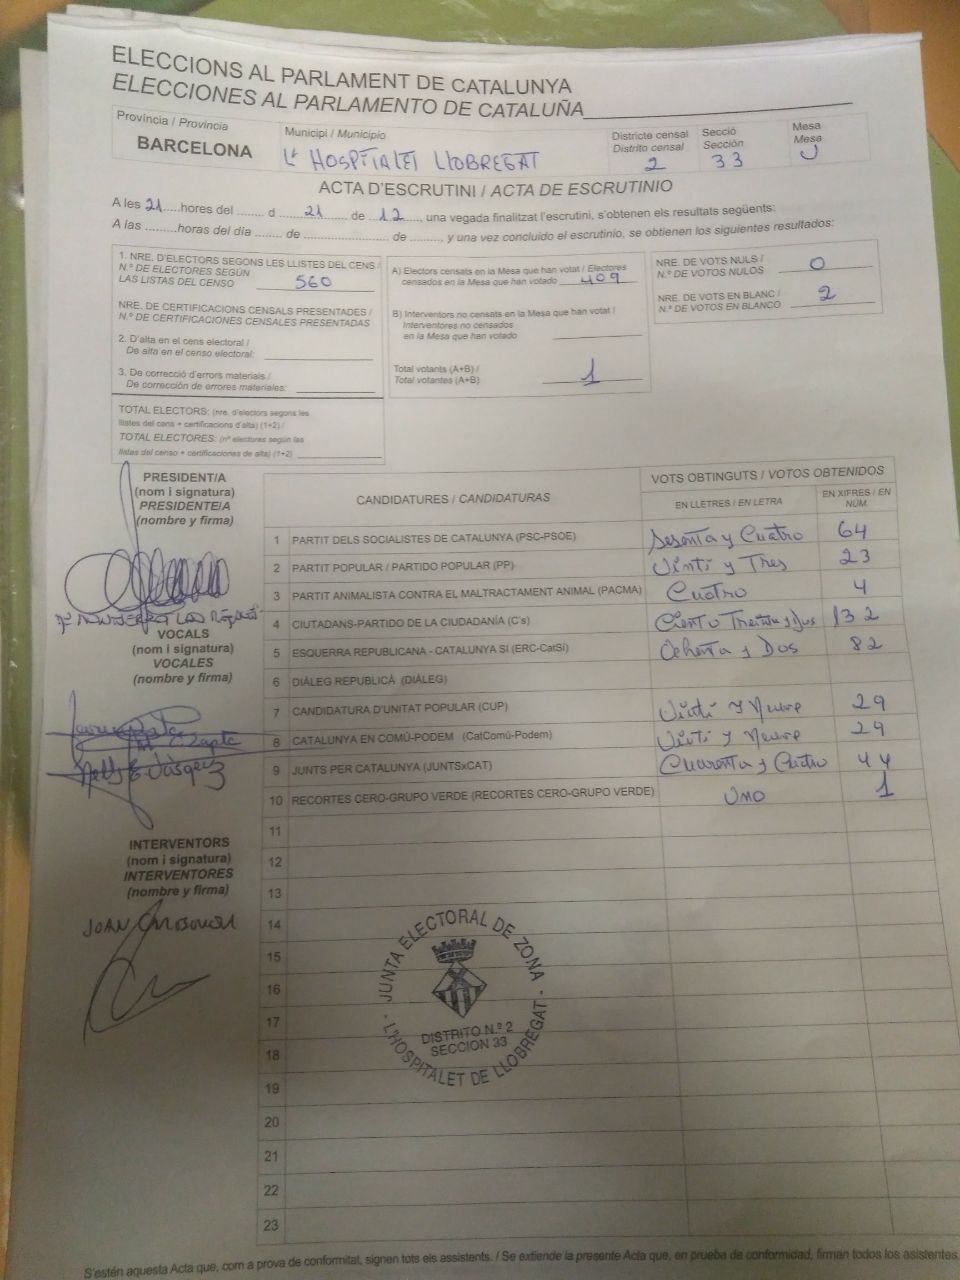 ELECCIONS AL PARLAMENT DE CATALUNYA
ELECCIONES AL PARLAMENTO DE CATALUÑA
Província / Provincia
BARCELONA
Municipi / Municipio
L' HOSPITALET LLOBREGAT
Districte censal
Distrito censal
2
Secció
Sección
33
Mesa
Mesa
U
ACTA D'ESCRUTINI / ACTA DE ESCRUTINIO
A les 21 hores del ........ d ........ 21 ........ de ...12..., una vegada finalitzat l'escrutini, s'obtenen els resultats següents:
A las .........horas del día ........ de ........................... de ........., y una vez concluido el escrutinio, se obtienen los siguientes resultados:
1. NRE. D'ELECTORS SEGONS LES LLISTES DEL CENS /
N.º DE ELECTORES SEGÚN
LAS LISTAS DEL CENSO 560
NRE. DE CERTIFICACIONS CENSALS PRESENTADES /
N.º DE CERTIFICACIONES CENSALES PRESENTADAS
2. D'alta en el cens electoral /
De alta en el censo electoral:
3. De correcció d'errors materials /
De corrección de errores materiales:
TOTAL ELECTORS: (nre. d'electors segons les
llistes del cens + certificacions d'alta) (1+2) /
TOTAL ELECTORES: (nº electores según las
listas del censo + certificaciones de alta) (1+2)
A) Electors censats en la Mesa que han votat / Electores
censados en la Mesa que han votado 409
B) Interventors no censats en la Mesa que han votat /
Interventores no censados
en la Mesa que han votado
Total votants (A+B) /
Total votantes (A+B) 1
NRE. DE VOTS NULS /
N.º DE VOTOS NULOS 0
NRE. DE VOTS EN BLANC /
N.º DE VOTOS EN BLANCO 2
PRESIDENT/A
(nom i signatura)
PRESIDENTE/A
(nombre y firma)
VOCALS
(nom i signatura)
VOCALES
(nombre y firma)
INTERVENTORS
(nom i signatura)
INTERVENTORES
(nombre y firma)
JOAN
CANDIDATURES / CANDIDATURAS
VOTS OBTINGUTS / VOTOS OBTENIDOS
EN LLETRES / EN LETRA
EN XIFRES / EN NÚM.
1 PARTIT DELS SOCIALISTES DE CATALUNYA (PSC-PSOE) Sesenta y Cuatro 64
2 PARTIT POPULAR / PARTIDO POPULAR (PP) Vinti y Tres 23
3 PARTIT ANIMALISTA CONTRA EL MALTRACTAMENT ANIMAL (PACMA) Cuatro 4
4 CIUTADANS-PARTIDO DE LA CIUDADANÍA (C's) Ciento Treinta y Dos 132
5 ESQUERRA REPUBLICANA - CATALUNYA SI (ERC-CatSí) Ochenta y Dos 82
6 DIÀLEG REPUBLICÀ (DIÀLEG)
7 CANDIDATURA D'UNITAT POPULAR (CUP) Vinti y Nueve 29
8 CATALUNYA EN COMÚ-PODEM (CatComú-Podem) Vinti y Nueve 29
9 JUNTS PER CATALUNYA (JUNTSxCAT) Cuarenta y Cuatro 44
10 RECORTES CERO-GRUPO VERDE (RECORTES CERO-GRUPO VERDE) UNO 1
11
12
13
14
15
16
17
18
19
20
21
22
23
JUNTA ELECTORAL DE ZONA
DISTRITO N.º 2
SECCION 33
- L'HOSPITALET DE LLOBREGAT -
S'estén aquesta Acta que, com a prova de conformitat, signen tots els assistents. / Se extiende la presente Acta que, en prueba de conformidad, firman todos los asistentes.